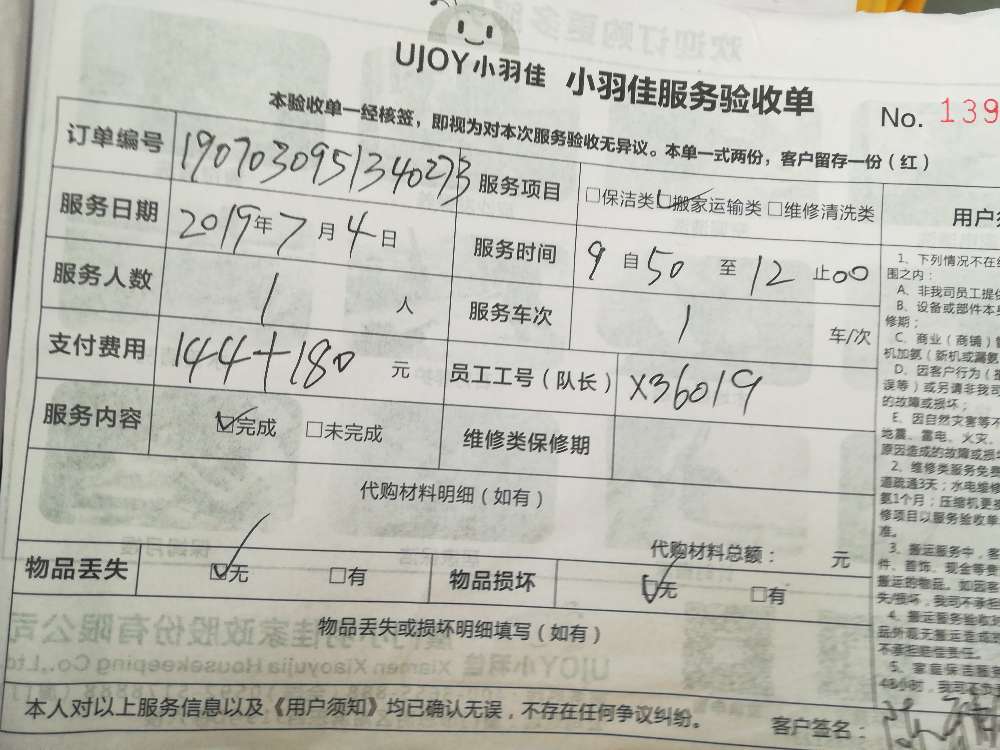 UJOY小羽佳 小羽佳服务验收单
No. 139
本验收单一经核签，即视为对本次服务验收无异议。本单一式两份，客户留存一份（红）
订单编号 1907030951340273 服务项目 □保洁类 ☑搬家运输类 □维修清洗类
服务日期 2019年7月4日 服务时间 9自50至12止00
服务人数 1人 服务车次 1 车/次
支付费用 144+180 元 员工工号（队长） X36019
服务内容 ☑完成 □未完成 维修类保修期
代购材料明细（如有）
代购材料总额： 元
物品丢失 ☑无 □有 物品损坏 ☑无 □有
物品丢失或损坏明细填写（如有）
本人对以上服务信息以及《用户须知》均已确认无误，不存在任何争议纠纷。
客户签名：
用户
1、下列情况不在
围之内：
A、非我司员工提
B、设备或部件本
修期；
C、商业（商铺）
机加氨（新机或漏
D、因客户行为（
误等）或另请非我司
的故障或损坏；
E、因自然灾害等不
地震、雷电、火灾、
原因造成的故障或损
2、维修类服务免费
道疏通3天；水电维修
氨1个月；压缩机更
修项目以服务验收单
准。
3、搬运服务中，客
件、首饰、现金等贵
搬运的物品。如因客
失/损坏，我司不承担
4、搬运服务验收
品外观无搬运造成
不承担赔偿责任。
5、家庭保洁服
48小时，我司不负